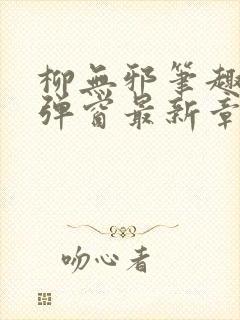 柳無邪筆趣
彈窗最新章
吻心者